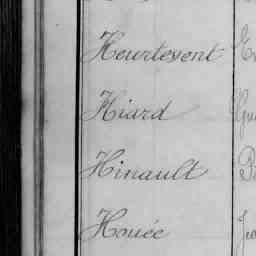 Heurtevent
Hiard
Hinault
Houée